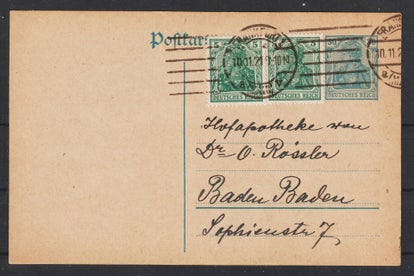 Postkar
FRANKFURT
10.11.21 9-10 N
5
5
30
DEUTSCHES REICH
DEUTSCHES REICH
DEUTSCHES REICH
10.11.2
Hofapotheke von
Dr O. Rössler
Baden Baden
Sophienstr 7